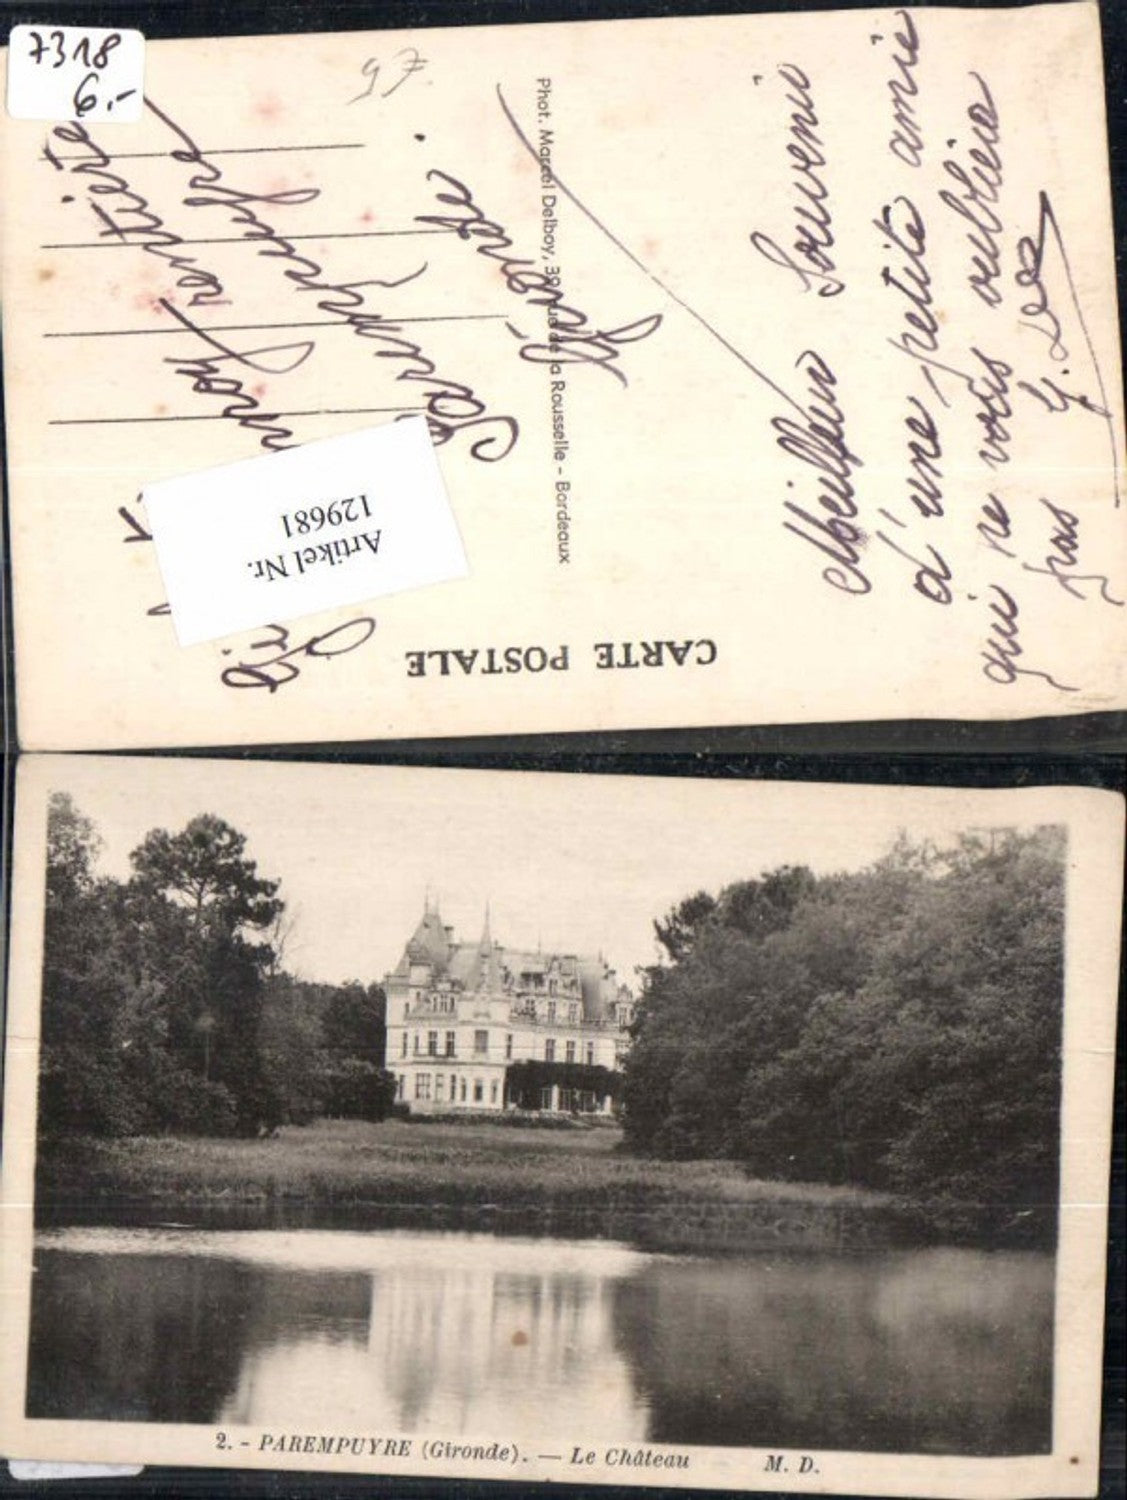 7318
6.-
97.
CARTE POSTALE
Meilleur Souvenir
d'une petite amie
qui ne vous oubliera
pas
Phot. Marcel Delboy, 39, rue de la Rousselle - Bordeaux
Artikel Nr.
129681
rentière
Parempuyre
Gironde
2. - PAREMPUYRE (Gironde). — Le Château
M. D.